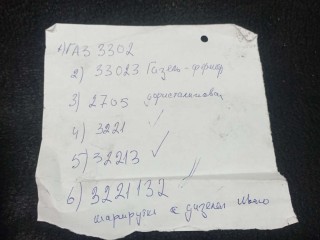 1) ГАЗ 3302
2) 33023 Газель-фермер
3) 2705
4) 3221
5) 32213 ✓
6) 3221132
маршрутки дизель